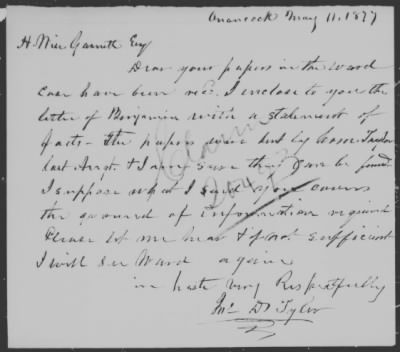 Onancock May 11, 1877
H. Wise Garnett Esq
Dear your papers in the Ward
Case have been recd. I enclose to you the
letter of Benjamin with a statement of
facts - The papers were sent by
last Augt. & I am sure they can be found
I suppose what I send you covers
the ground of information required
Please let me hear & if not sufficient
I will see Ward again
in haste Very Respectfully
Jno D Tyler